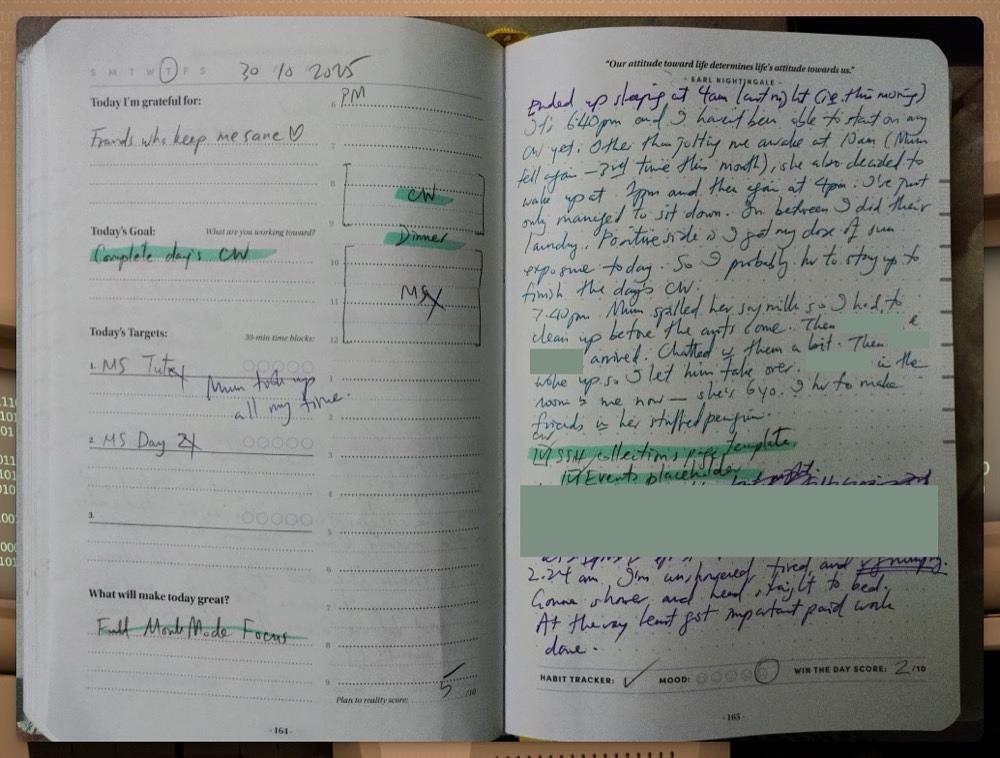 S M T W T F S 30 10 2025
Today I'm grateful for:
Friends who keep me sane ♡
Today's Goal: What are you working toward?
Complete day's CW
Today's Targets: 30-min time blocks:
1. MS Tute X
Mum took up
all my time.
2. MS Day 2 X
3.
What will make today great?
Full Monk Mode Focus
6 PM
7
8 CW
9 Dinner
10
11 MS X
12
1
2
3
4
5
6
7
8
9
Plan to reality score: 5/10
- 164 -
"Our attitude toward life determines life's attitude towards us."
- EARL NIGHTINGALE -
Ended up sleeping at 4am last night (i.e. this morning)
It's 6:40pm and I haven't been able to start on any
CW yet. Other than jolting me awake at 10am (Mum
fell again - 3rd time this month), she also decided to
wake up at 2pm and then again at 4pm. I've just
only managed to sit down. In between I did their
laundry. Positive side is I got my dose of sun
exposure today. So I probably hv to stay up to
finish the day's CW.
7.40pm. Mum spilled her soy milk so I had to
clean up before the ants come. Then &
arrived. Chatted w them a bit. Then
woke up so I let him take over. is in the
room w me now - she's 6yo. I hv to make
friends w her stuffed penguin.
CW
☑ SSH collections page template
☑ Events placeholder
2.24 am. I'm unshowered, tired, and v grumpy.
Gonna shower and head straight to bed.
At the very least got important paid work
done.
HABIT TRACKER: ✓ MOOD: WIN THE DAY SCORE: 2/10
- 165 -